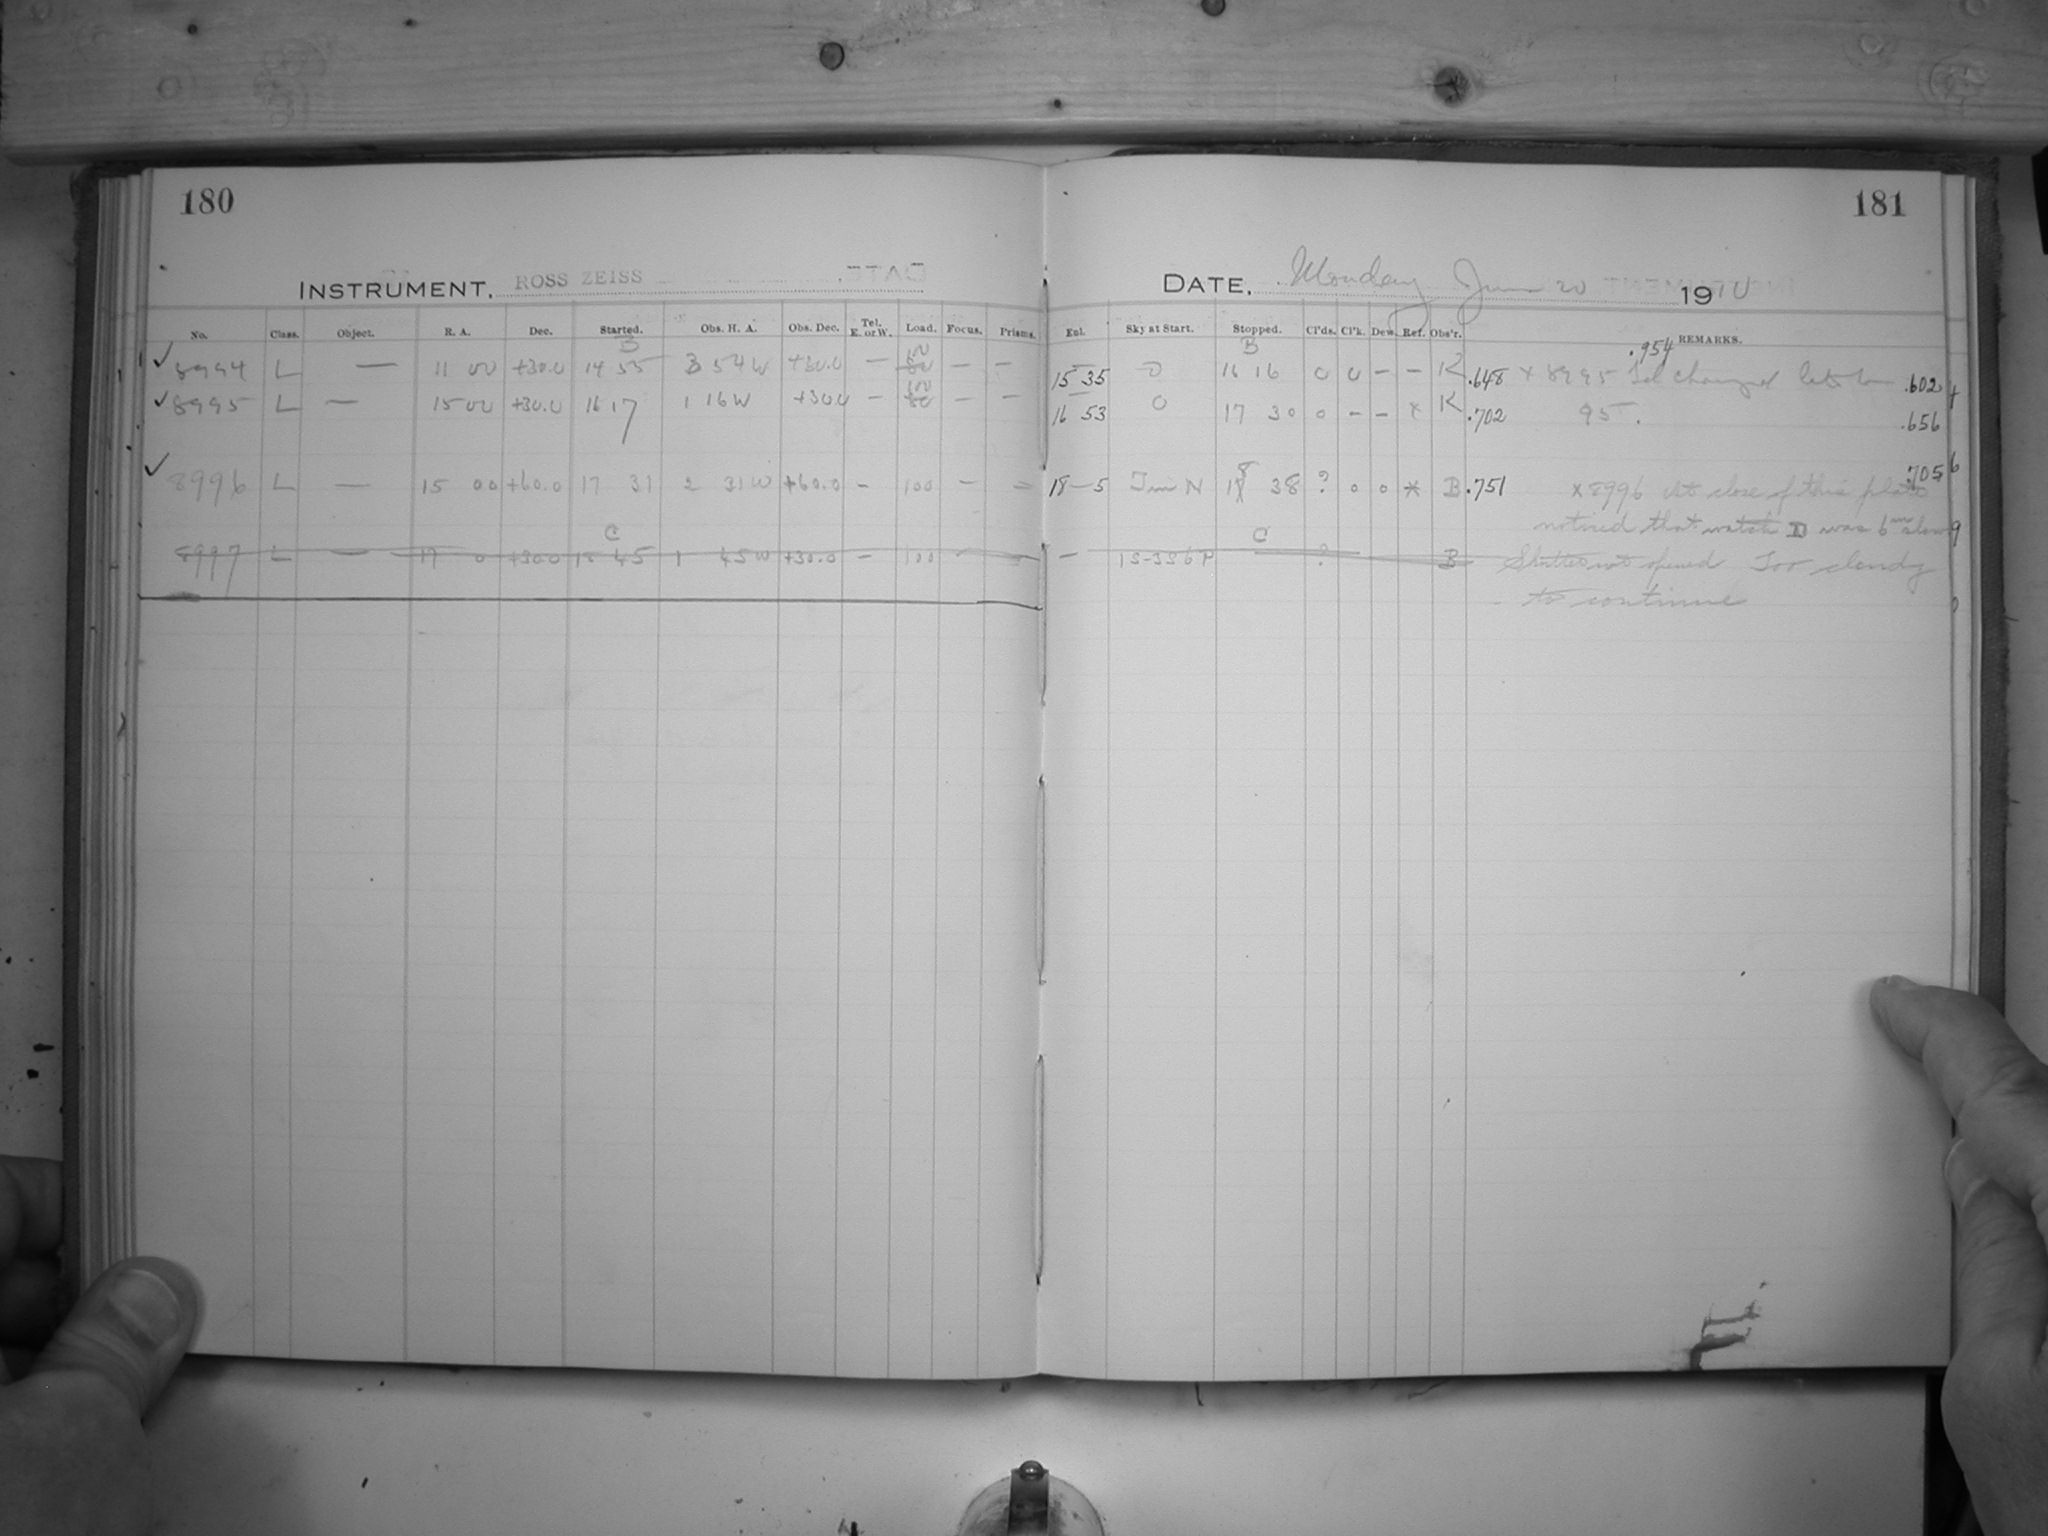 180
181
INSTRUMENT, ROSS ZEISS
DATE, Monday June 20 1910
No. Class. Object. R. A. Dec. Started. Obs. H. A. Obs. Dec. Tel. E. or W. Load. Focus. Prisms.
Eul. Sky at Start. Stopped. Cl'ds. Cl'k. Dew. Ref. Obs'r. REMARKS.
B
B
.954
✓ 8994 L — 11 00 +30.0 14 55 3 54 W +30.0 — 100 — —
15 35 0 16 16 0 0 — — K .648 × 8995 Tel changed .602
✓ 8995 L — 15 00 +30.0 16 17 1 16 W +30.0 — 100 — —
16 53 0 17 30 0 — — × K .702 95 . .656
✓ 8996 L — 15 00 +60.0 17 31 2 31 W +60.0 — 100 — —
18 — 5 N 18 38 ? 0 0 * B .751 × 8996 At close of this plate .705
noticed that watch D was 6m slow
C
C
8997 L — 17 0 +30.0 18 45 1 45 W +30.0 — 100 — —
— ? B Shutter not opened Too cloudy
to continue